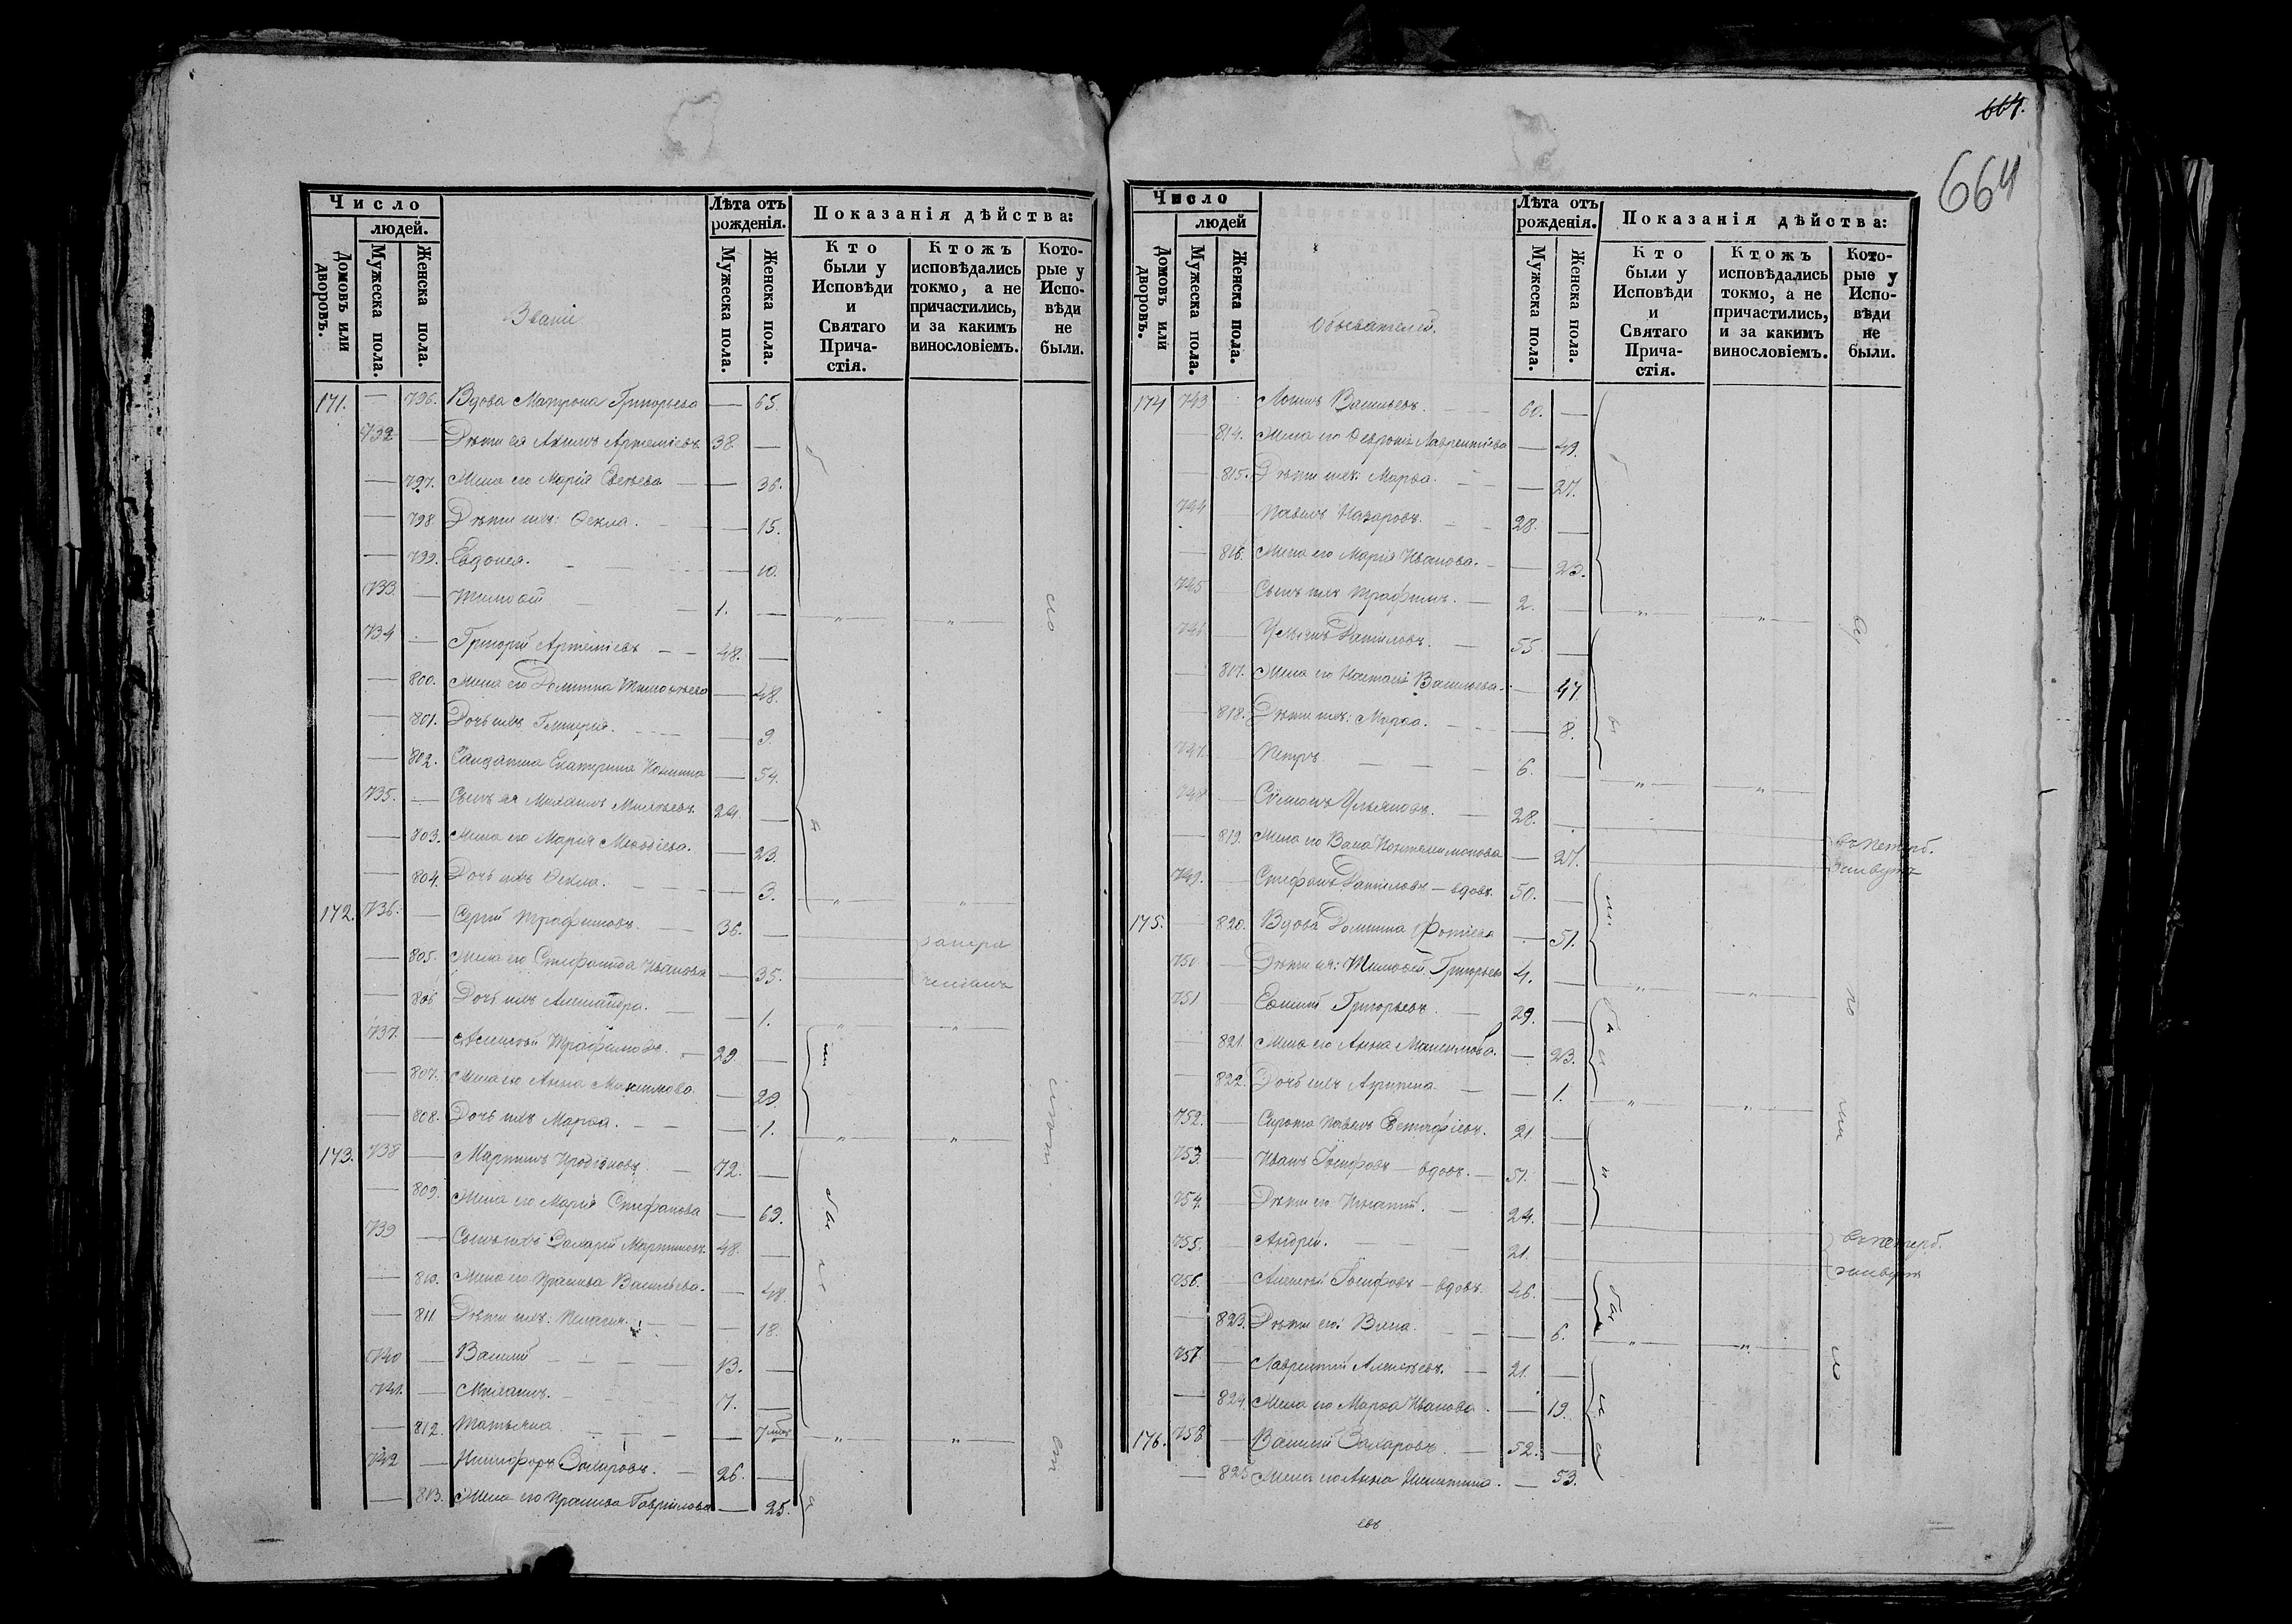 664.
664
Число
людей.
Домовъ или дворовъ.
Мужеска пола.
Женска пола.
Званіе
Лѣта отъ рожденія.
Мужеска пола.
Женска пола.
Показанія дѣйства:
Кто были у Исповѣди и Святаго Прича-стія.
Ктожъ исповѣдались токмо, а не причастились, и за какимъ винословіемъ.
Кото-рые у Испо-вѣди не были.
171. — 796. Вдова Матрона Григорьева — 65.
732 — Дѣти ея Акимъ Артеміевъ 38. —
— 797. Жена его Марія — 36.
— 798. Дѣти ихъ: Ѳекла. — 15.
— 799. Евдокея. — 10.
733. — Тимоѳей 1. —
734 — Григорій Артеміевъ 48. —
— 800. Жена его Домника Тимоѳеева — 48.
— 801. Дочь ихъ Гликерія. — 9.
— 802. Солдатка Екатерина — 54.
735. — Сынъ ея Михаилъ 24. —
— 803. Жена его Марія Меѳодіева. — 23.
— 804. Дочь ихъ Ѳекла. — 3.
172. 736. — Сергій Трофимовъ. 36. —
— 805. Жена его Стефанида Иванова — 35.
— 806 Дочь ихъ Александра. — 1.
737. — Алексѣй Трофимовъ. 29 —
— 807. Жена его Анна Максимова — 29.
— 808. Дочь ихъ Марѳа. — 1.
173. 738 — Мартинъ Иродіоновъ 72. —
— 809. Жена его Марія Стефанова — 69.
739 — Сынъ ихъ Захарій Мартиновъ 48. —
— 810. Жена его Ираида Васильева. — 48
— 811 Дѣти ихъ: Пелагія. — 18.
740 — Василій 13. —
741. — Михаилъ. 7. —
— 812. Татьяна —
742 — Никифоръ Захаровъ. 26. —
— 813. Жена его Гаврилова — 25.
Число
людей
Домовъ или дворовъ.
Мужеска пола.
Женска пола.
Обывателей.
Лѣта отъ рожденія.
Мужеска пола.
Женска пола.
Показанія дѣйства:
Кто были у Исповѣди и Святаго Прича-стія.
Ктожъ исповѣдались токмо, а не причастились, и за какимъ винословіемъ.
Кото-рые у Испо-вѣди не были.
174 743 Васильевъ. 60. —
814. Жена его Ѳевронія Лаврентіева — 49.
815. Дѣти ихъ: Марѳа. — 27.
744 Павелъ Назаровъ. 28. —
816. Жена его Марія Иванова. — 23.
745 Сынъ ихъ Трофимъ. 2. —
746 Ульянъ Даніловъ. 55 —
817. Жена его Настасія Васильева. — 47.
818. Дѣти ихъ: Марѳа. — 8.
747. Петръ 6. —
748 Симеонъ Ульяновъ. 28.
819. Жена его — 27. въ Петерб.
749. Стефанъ Даніловъ — вдовъ. 50. —
175. 820. Вдова Домника Фотіева — 51.
750. Дѣти ея: Тимоѳей Григорьевъ 4. —
751 Григорьевъ. 29. —
821. Жена его Анна Максимова. — 23.
822. Дочь ихъ Агрипина. — 1.
752. Сирота Павелъ Евстафіевъ. 21 —
753. Иванъ Іосифовъ — вдовъ. 51. —
754. Дѣти его Игнатій. 24. —
755. Андрей. 21. въ Петерб.
756. Алексѣй Іосифовъ — вдовъ. 46. —
823. Дѣти его: — 6.
757 Лаврентій Алексѣевъ. 21. —
824. Жена его Марѳа Иванова — 19.
176. 758 Василій Захаровъ. 52. —
— 825 Жена его Анна Никитина. — 53.
евъ